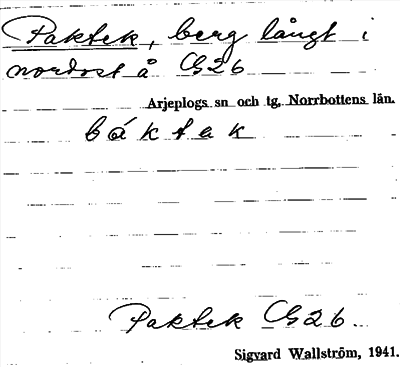 Paktek, berg långt i
nordost å Cs26
Arjeplogs sn och tg, Norrbottens län.
báktek
Paktek Cs26.
Sigvard Wallström, 1941.